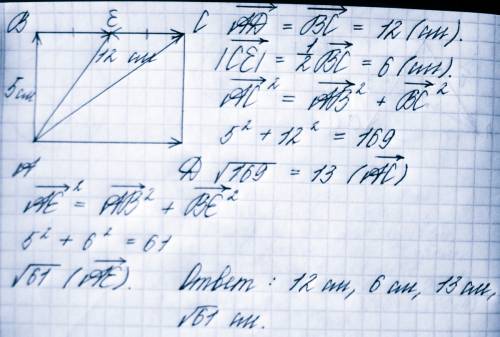 B E C
12 см
5 см
A D
AD⃗ = BC⃗ = 12 (см).
|CE⃗| = 1/2 BC⃗ = 6 (см).
AC⃗² = AB⃗² + BC⃗²
5² + 12² = 169
√169 = 13 (AC⃗)
AE⃗² = AB⃗² + BE⃗²
5² + 6² = 61
√61 (AE⃗).
Ответ: 12 см, 6 см, 13 см,
√61 см.